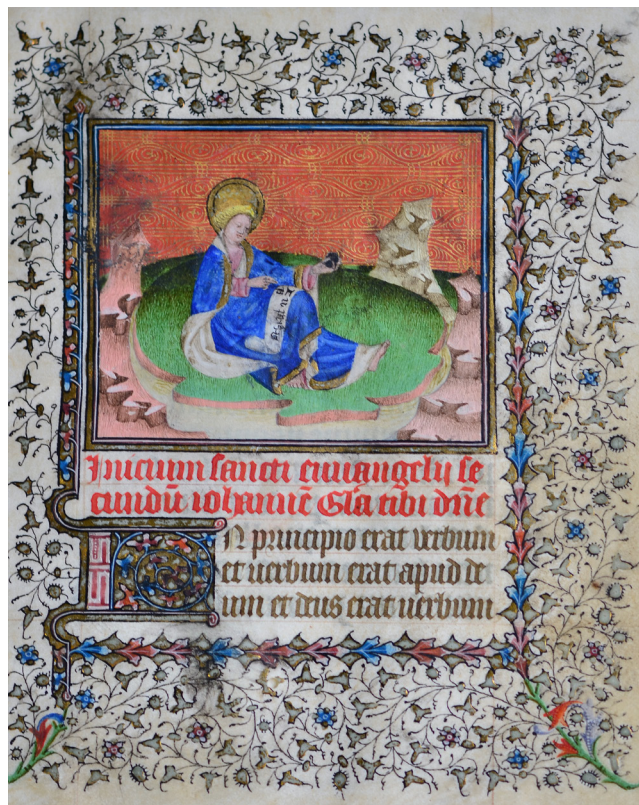 Inicium sancti euuangelij se
cundū iohannē Gl̄a tibi dn̄e
IN principio erat verbum
et uerbum erat apud de
um et deus erat uerbum